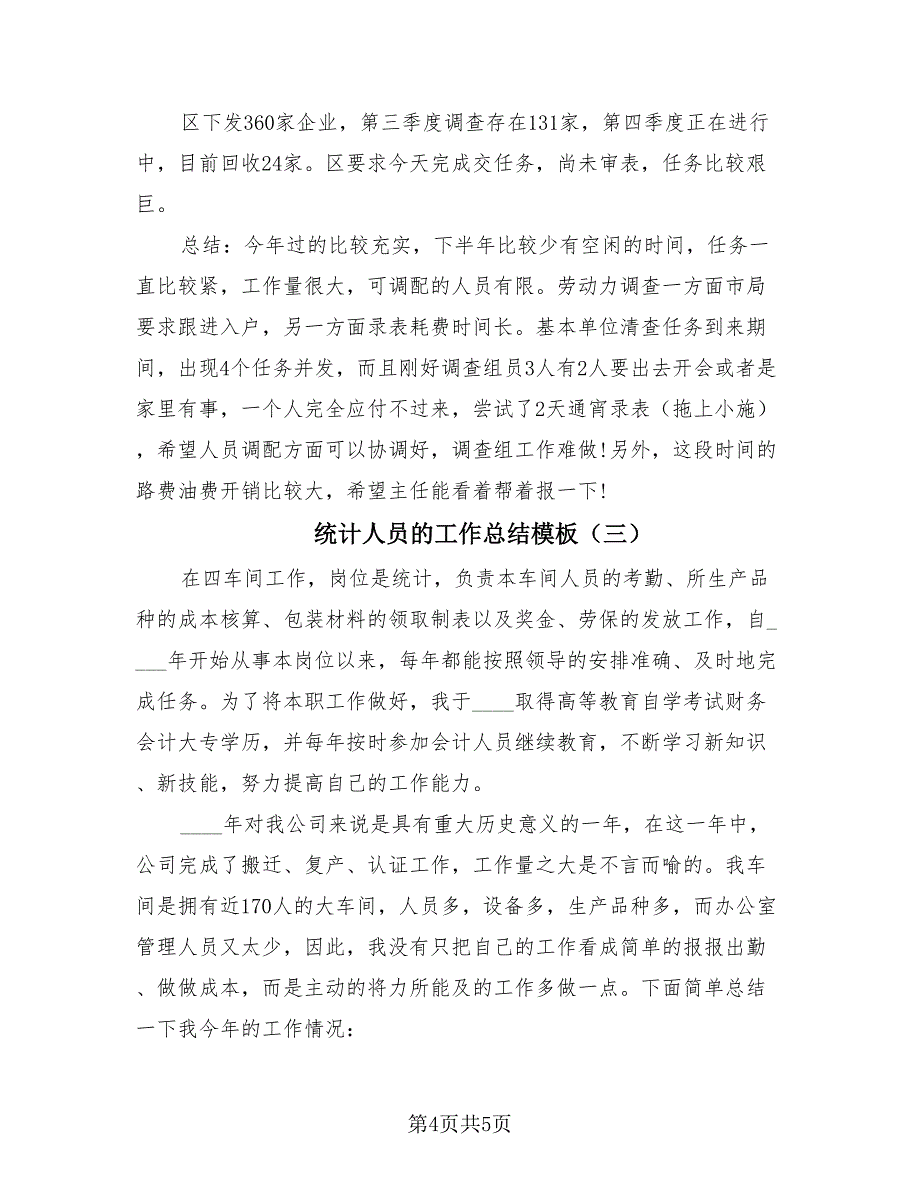 区下发360家企业，第三季度调查存在131家，第四季度正在进行
中，目前回收24家。区要求今天完成交任务，尚未审表，任务比较艰
巨。
总结：今年过的比较充实，下半年比较少有空闲的时间，任务一
直比较紧，工作量很大，可调配的人员有限。劳动力调查一方面市局
要求跟进入户，另一方面录表耗费时间长。基本单位清查任务到来期
间，出现4个任务并发，而且刚好调查组员3人有2人要出去开会或者是
家里有事，一个人完全应付不过来，尝试了2天通宵录表（拖上小施）
，希望人员调配方面可以协调好，调查组工作难做!另外，这段时间的
路费油费开销比较大，希望主任能看着帮着报一下!
统计人员的工作总结模板（三）
在四车间工作，岗位是统计，负责本车间人员的考勤、所生产品
种的成本核算、包装材料的领取制表以及奖金、劳保的发放工作，自_
___年开始从事本岗位以来，每年都能按照领导的安排准确、及时地完
成任务。为了将本职工作做好，我于____取得高等教育自学考试财务
会计大专学历，并每年按时参加会计人员继续教育，不断学习新知识
、新技能，努力提高自己的工作能力。
____年对我公司来说是具有重大历史意义的一年，在这一年中，
公司完成了搬迁、复产、认证工作，工作量之大是不言而喻的。我车
间是拥有近170人的大车间，人员多，设备多，生产品种多，而办公室
管理人员又太少，因此，我没有只把自己的工作看成简单的报报出勤
、做做成本，而是主动的将力所能及的工作多做一点。下面简单总结
一下我今年的工作情况：
第4页共5页